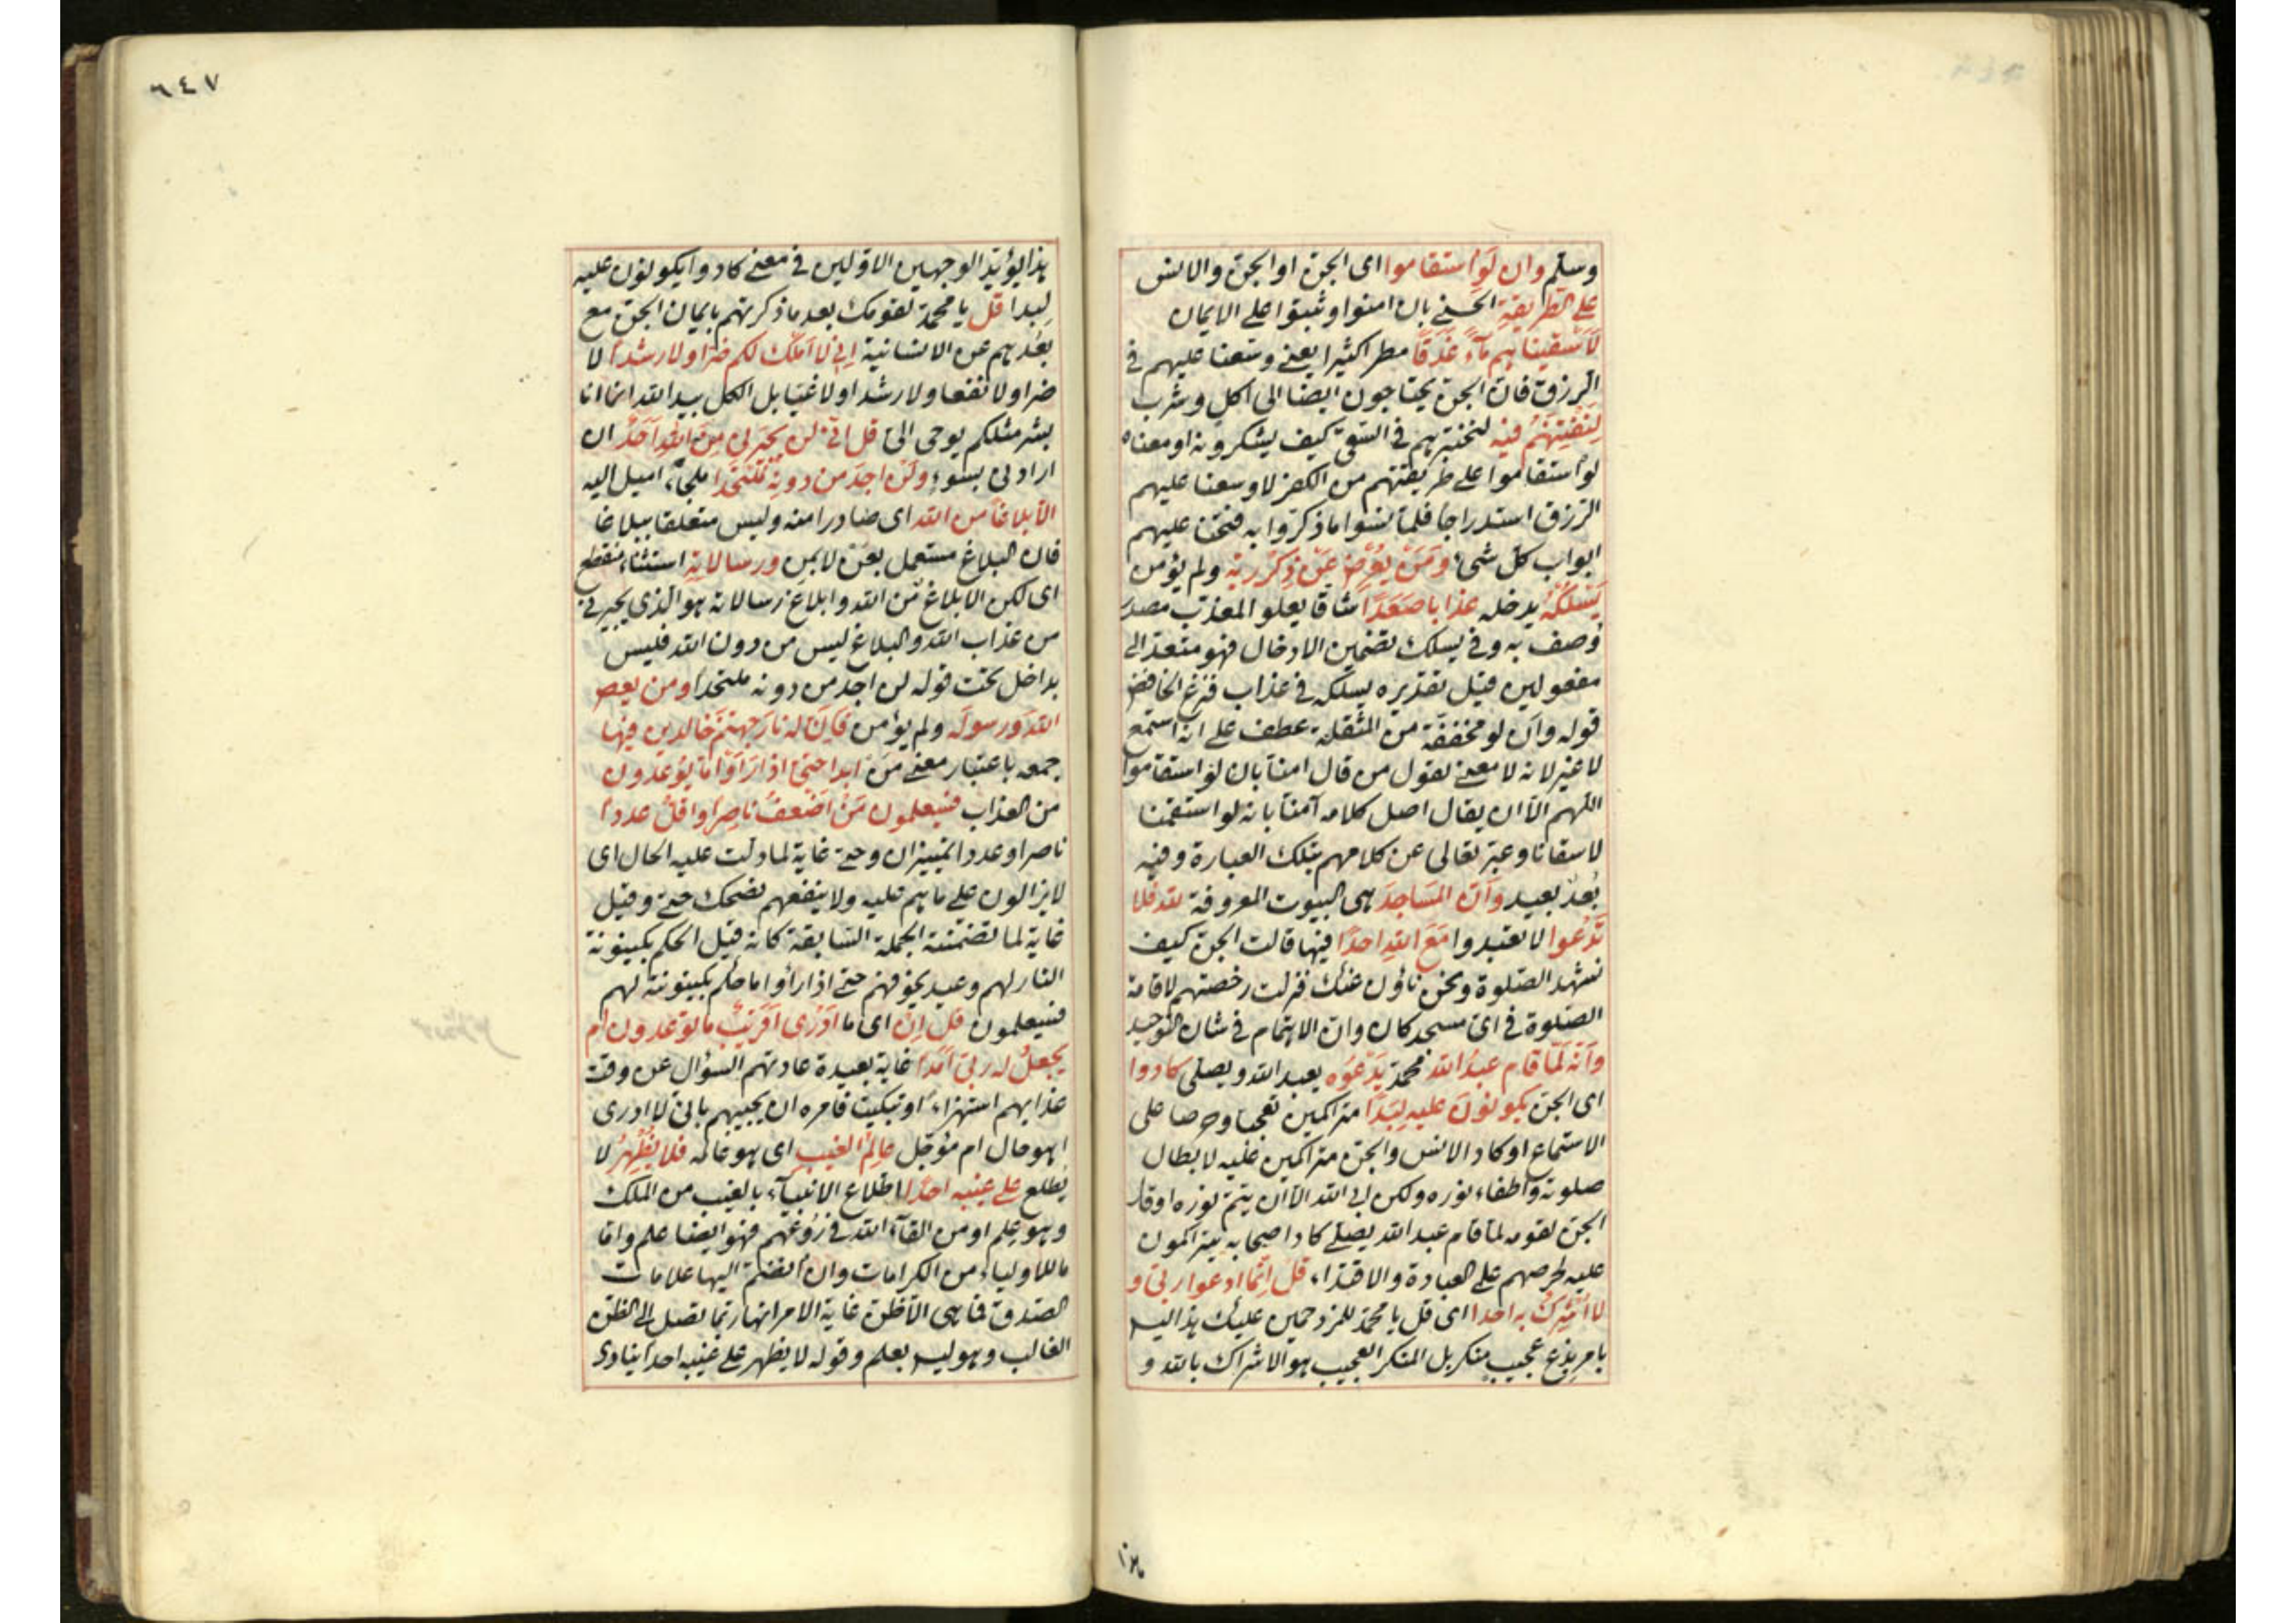 وسلم وان لو استقاموا اى الجن او الجن والانس
على الطريقة الحسنى بان امنوا وثبتوا على الايمان
لاسقيناهم مآء غدقا مطرا كثيرا يعنى وسعنا عليهم فى
الرزق فان الجن يحتاجون ايضا الى اكل وشرب
لنفتنهم فيه لنختبرهم فى السقى كيف يشكرونه او معناه
لو استقاموا على طريقتهم من الكفر لاوسعنا عليهم
الرزق استدراجا فلما نسوا ما ذكروا به فتحنا عليهم
ابواب كل شىء ومن يعرض عن ذكر ربه ولم يؤمن
يسلكه يدخله عذابا صعدا شاقا يعلو المعذب مصدر
وصف به وفى يسلك تضمين الادخال فهو متعد الى
مفعولين قيل تقديره يسلكه فى عذاب فنزع الخافض
قوله وان لو مخففة من المثقلة عطف على انه استمع
لا غير لانه لا معنى لقول من قال امنا بان لو استقاموا
اللهم الا ان يقال اصل كلامه آمنا بانه لو استقمنا
لاسقانا وعبر تعالى عن كلامهم بتلك العبارة وفيه
بعد بعيد وان المساجد هى البيوت المعروفة لله فلا
تدعوا لا تعبدوا مع الله احدا فيها قالت الجن كيف
نشهد الصلوة ونحن ناؤن عنك فنزلت رخصتهم لاقامة
الصلوة فى اى مسجد كان وان الاهتمام فى شان التوحيد
وانه لما قام عبد الله محمد يدعوه يعبد الله ويصلى كادوا
اى الجن يكونون عليه لبدا متراكمين تعجبا وحرصا على
الاستماع او كاد الانس والجن متراكمين عليه لابطال
صلوته واطفاء نوره ولكن ابى الله الا ان يتم نوره او قال
الجن لقومه لما قام عبد الله يصلى كاد اصحابه يتراكمون
عليه لحرصهم على العبادة والاقتداء قل انما ادعوا ربى و
لا اشرك به احدا اى قل يا محمد للمزدحمين عليك هذا ليس
بامر بدع عجيب منكر بل المنكر العجيب هو الاشراك بالله و
٦٤٧
هذا يؤيد الوجهين الاولين فى معنى كادوا يكونون عليه
لبدا قل يا محمد لقومك بعد ما ذكرتهم بايمان الجن مع
بعدهم عن الانسانية انى لا املك لكم ضرا ولا رشدا لا
ضرا ولا نفعا ولا رشدا ولا غيا بل الكل بيد الله انما انا
بشر مثلكم يوحى الى قل انى لن يجيرنى من الله احد ان
اراد بى بسوء ولن اجد من دونه ملتحدا ملجأ اميل اليه
الا بلاغا من الله اى صادرا منه وليس متعلقا ببلاغا
فان البلاغ مستعمل بعن لا بمن ورسالاته استثناء منقطع
اى لكن الابلاغ من الله وابلاغ رسالاته هو الذى يجيرنى
من عذاب الله والبلاغ ليس من دون الله فليس
بداخل تحت قوله لن اجد من دونه ملتحدا ومن يعص
الله ورسوله ولم يؤمن فان له نار جهنم خالدين فيها
جمعه باعتبار معنى من ابدا حتى اذا راوا ما يوعدون
من العذاب فسيعلمون من اضعف ناصرا واقل عددا
ناصرا وعددا تمييزان وحتى غاية لما دلت عليه الحال اى
لا يزالون على ما هم عليه ولا ينفعهم نصحك حتى وقيل
غاية لما تضمنته الجملة السابقة كانه قيل الحكم بكينونة
النار لهم وعيد يخوفهم حتى اذا راوا ما حكم بكينونته لهم
فسيعلمون قل ان اى ما ادرى اقريب ما توعدون ام
يجعل له ربى امدا غاية بعيدة عادتهم السؤال عن وقت
عذابهم استهزاء او تبكيت فامره ان يجيبهم بانى لا ادرى
اهو حال ام مؤجل عالم الغيب اى هو عالم فلا يظهر لا
يطلع على غيبه احدا اطلاع الانبيآء بالغيب من الملك
وهو علم او من القآء الله فى روعهم فهو ايضا علم واما
ما للاولياء من الكرامات وان انضم اليها علامات
الصدق فما هى الا ظن غاية الامر انها ربما تصل الى الظن
الغالب وهو ليس بعلم وقوله لا يظهر على غيبه احدا ينادى